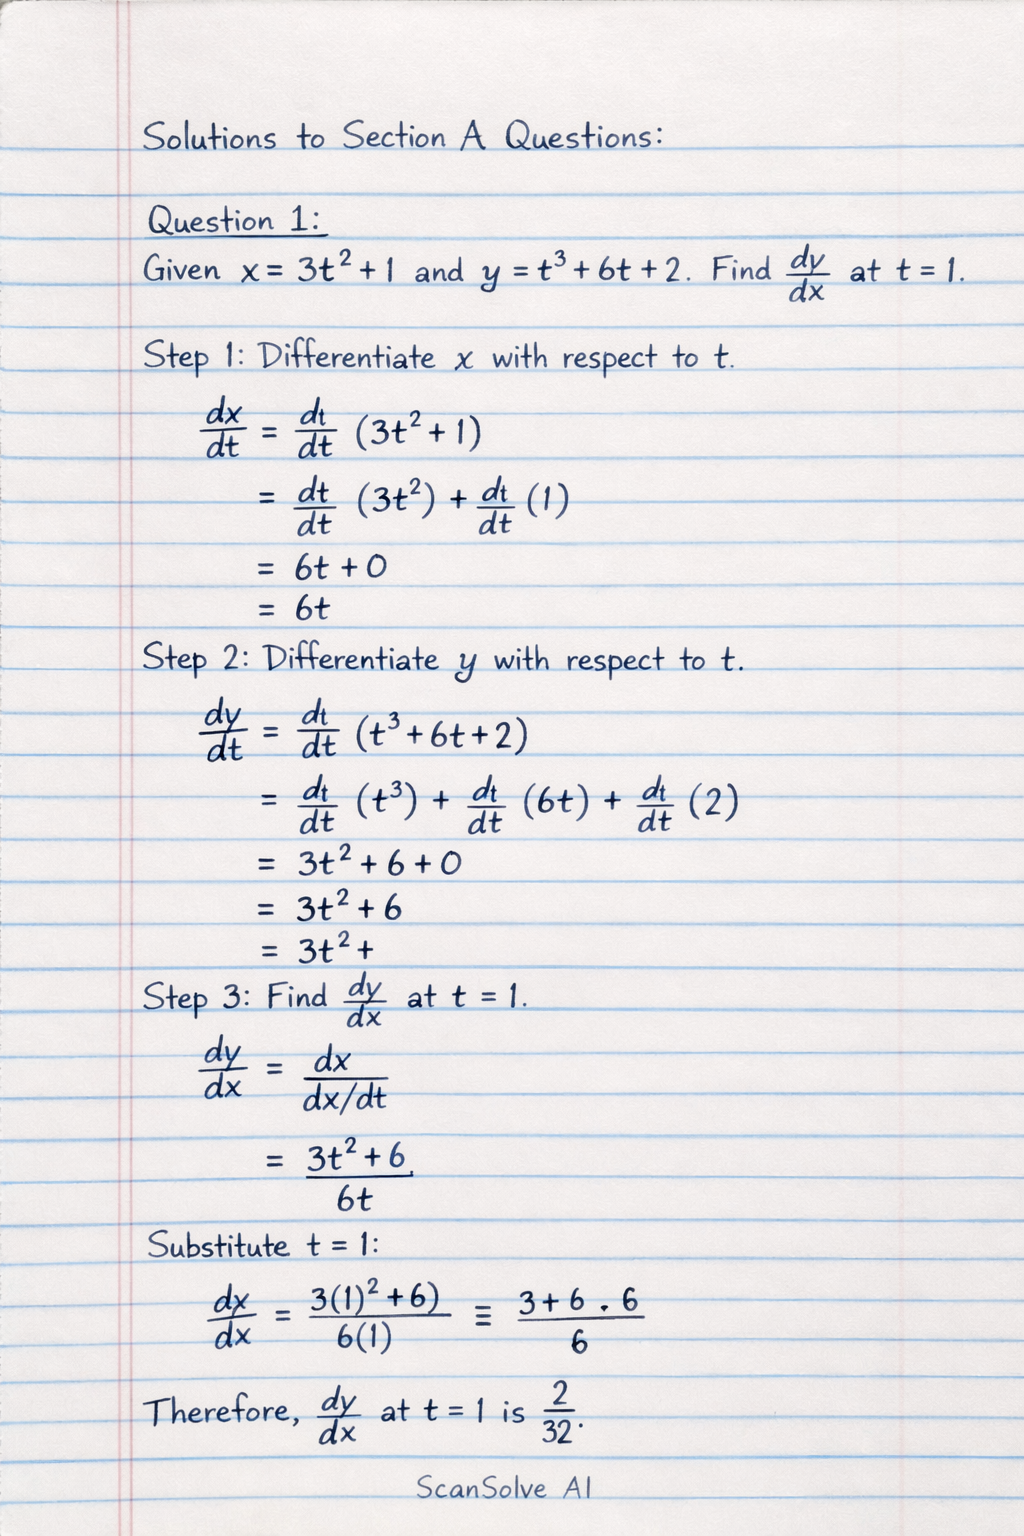 Solutions to Section A Questions:
Question 1:
Given x = 3t² + 1 and y = t³ + 6t + 2. Find dy/dx at t = 1.
Step 1: Differentiate x with respect to t.
dx/dt = dt/dt (3t² + 1)
= dt/dt (3t²) + dt/dt (1)
= 6t + 0
= 6t
Step 2: Differentiate y with respect to t.
dy/dt = dt/dt (t³ + 6t + 2)
= dt/dt (t³) + dt/dt (6t) + dt/dt (2)
= 3t² + 6 + 0
= 3t² + 6
= 3t² +
Step 3: Find dy/dx at t = 1.
dy/dx = dx/(dx/dt)
= 3t² + 6/6t
Substitute t = 1:
dx/dx = 3(1)² + 6)/6(1) ≡ 3 + 6 . 6/6
Therefore, dy/dx at t = 1 is 2/32.
ScanSolve AI